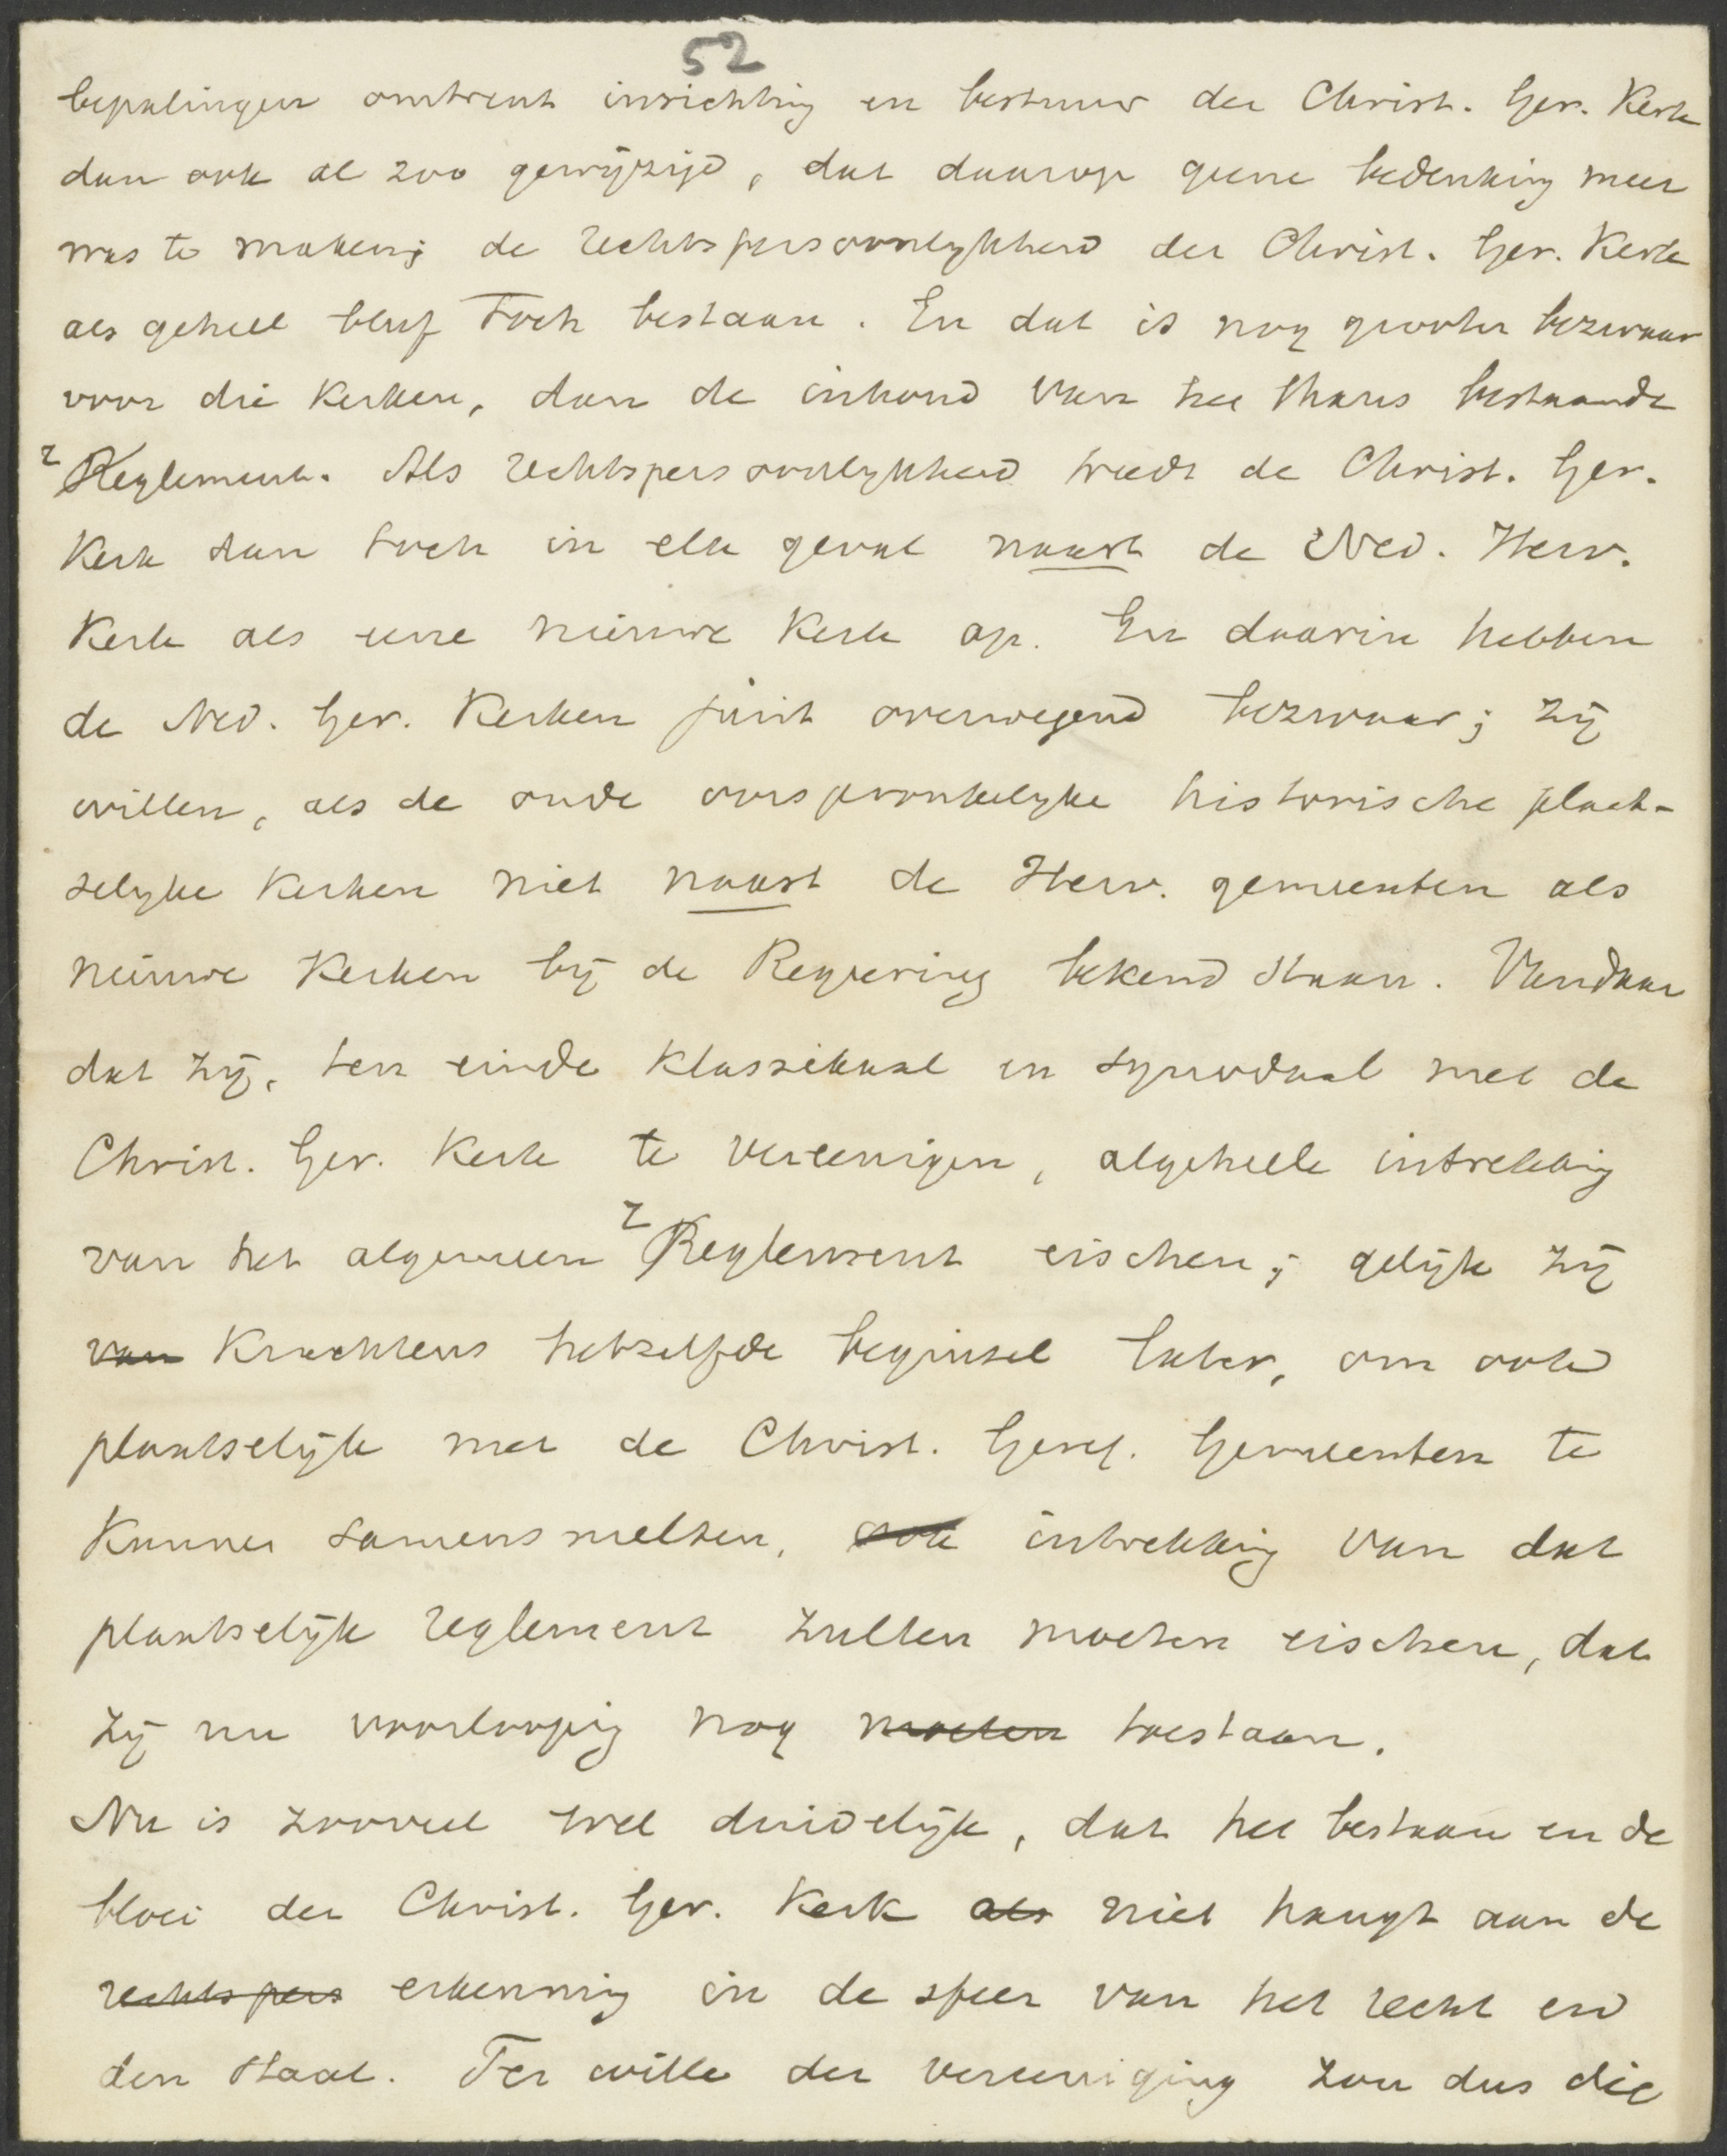 52
bepalingen omtrent inrichting en bestuur der Christ. Ger. Kerk
dan ook al zoo gewijzigd, dat daarop geene bedenking meer
was te maken; de rechtspersoonlykheid der Christ. Ger. Kerk
als geheel bleef toch bestaan. En dat is nog grooter bezwaar
voor die Kerken, dan de inhoud van het thans bestaande
r Reglement. Als rechtspersoonlykheid treedt de Christ. Ger.
Kerk dan toch in elk geval naast de Ned. Herv.
Kerk als eene nieuwe Kerk op. En daarin hebben
de Ned. Ger. Kerken juist overwegend bezwaar; zij
willen, als de oude oorspronkelyke historische plaat-
selyke Kerken niet naast de Herv. gemeenten als
nieuwe Kerken bij de Regeering bekend staan. Vandaar
dat zij, ten einde Klassikaal en synodaal met de
Christ. Ger. Kerk te vereenigen, algeheele intrekking
van het algemeen r Reglement eischen; gelijk zij
van Krachtens hetzelfde beginsel later, om ook
plaatselijk met de Christ. Geref. Gemeenten te
Kunnen samensmelten, ook intrekking van dat
plaatselijk reglement zullen moeten eischen, dat
zij nu voorloopig nog moeten toestaan.
Nu is zooveel wel duidelijk, dat het bestaan en de
bloei der Christ. Ger. Kerk als niet hangt aan de
rechtspers erkenning in de sfeer van het recht en
den staat. Ter wille der vereeniging zou dus die